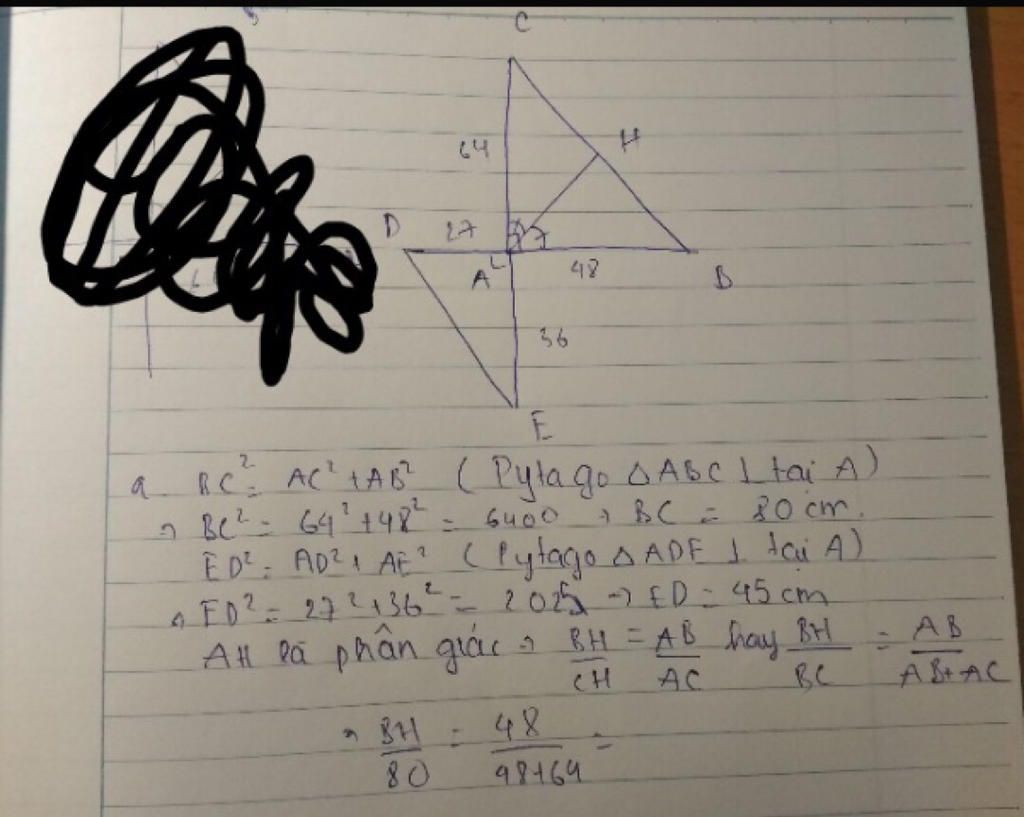 C
64
H
D
27
A
48
B
36
E
a. BC² = AC² + AB² (Pytago △ABC ⊥ tại A)
→ BC² = 64² + 48² = 6400 → BC = 80 cm.
ED² = AD² + AE² (Pytago △ADE ⊥ tại A)
→ ED² = 27² + 36² = 2025 → ED = 45 cm
AH là phân giác → BH/CH = AB/AC hay BH/BC = AB/AB+AC
→ BH/80 = 48/48+64 =